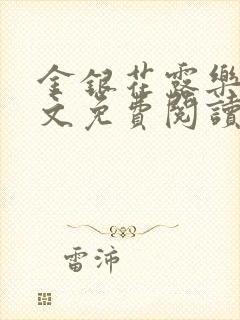 金銀花露樂
文免費閱讀
雷沛